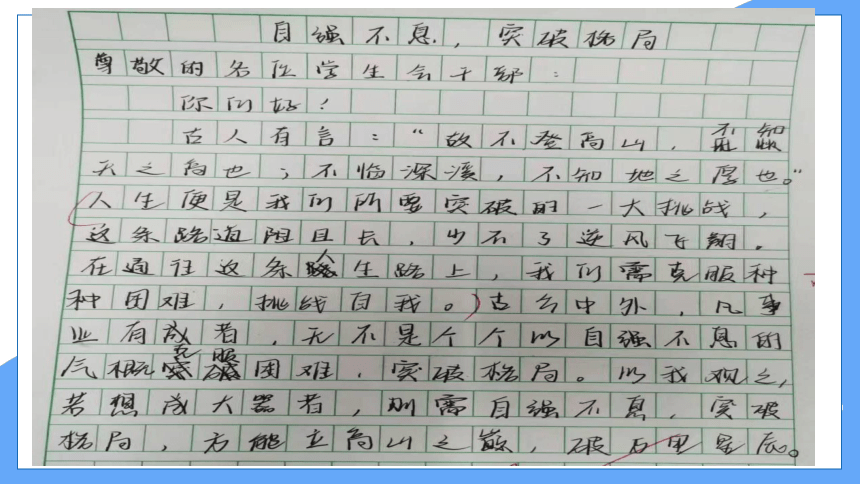 自强不息，突破格局
尊敬的各位学生会干部：
你们好！
古人有言：“故不登高山，不知
天之高也；不临深溪，不知地之厚也。”
人生便是我们所要突破的一大挑战，
这条路道阻且长，少不了逆风飞翔。
在通往这条人生路上，我们需克服种
种困难，挑战自我。古今中外，凡事
业有成者，无不是个个以自强不息的
气概克服困难，突破格局。以我观之，
若想成大器者，则需自强不息，突破
格局，方能立高山之巅，破万里星辰。